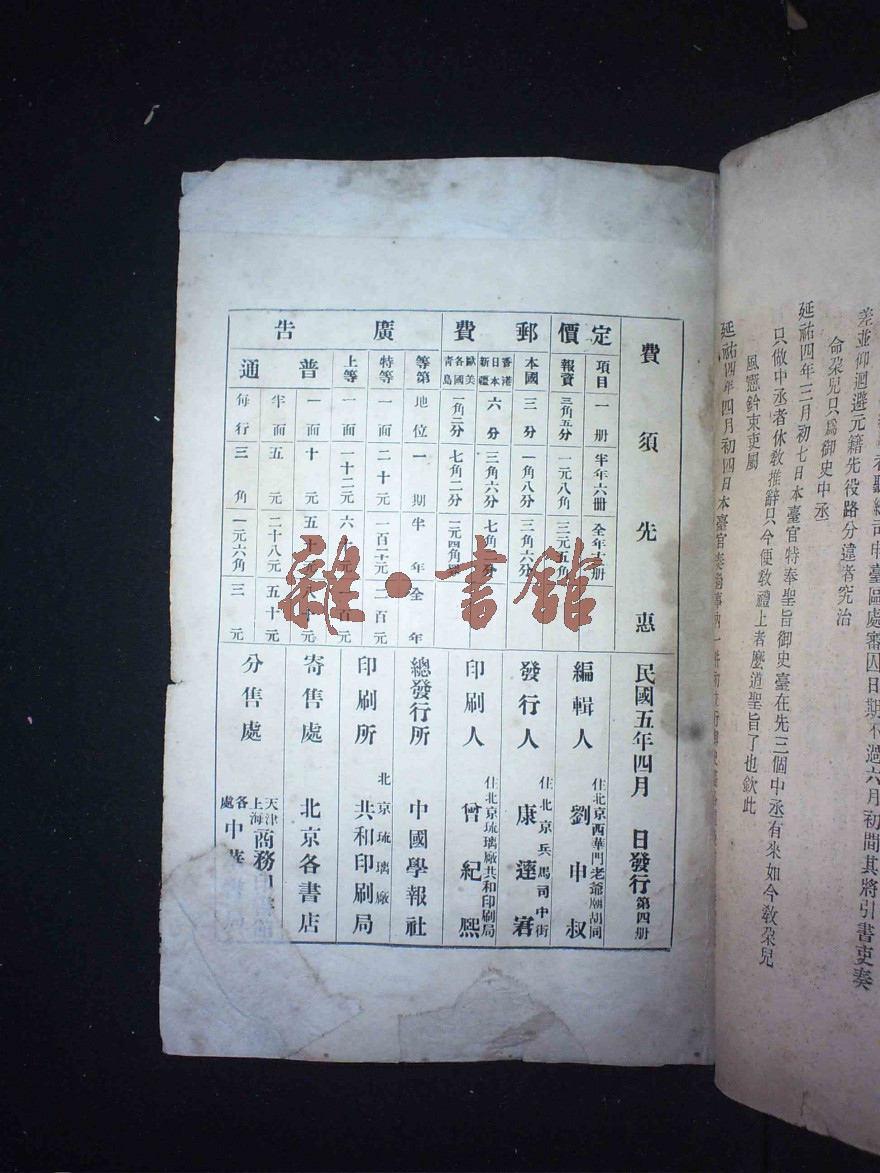 差並仰迴避元籍先役路分違者究治
命朵兒只爲御史中丞
延祐四年三月初七日本臺官特奉聖旨御史臺在先三個中丞有來如今敎朵兒
只做中丞者休敎推辭只今便敎禮上者麼道聖旨了也欽此
風憲鈐束吏屬
費須先惠
定價
項目 一册 半年六册 全年十二册
報資 三角五分 一元八角 三元五角
郵費
本國 三分 一角八分 三角六分
香港 日本 新疆 六分 三角六分 七角
歐美各國 青島 一角二分 七角二分 一元四角
廣告
等第 地位 一期 半年 全年
特等 一面 二十元 一百二十元 二百元
上等 一面 十二元 六十元 一百元
普通
一面 十元 五十元
半面 五元 二十八元 五十元
每行 三角 一元六角 三元
民國五年四月 日發行 第四册
編輯人 住北京西華門老爺廟胡同 劉申叔
發行人 住北京兵馬司中街 康蓮窘
印刷人 住北京琉璃廠共和印刷局 曾紀熙
總發行所 中國學報社
印刷所 北京琉璃廠 共和印刷局
寄售處 北京各書店
分售處 天津 上海 商務 各處 中華
雜·書館